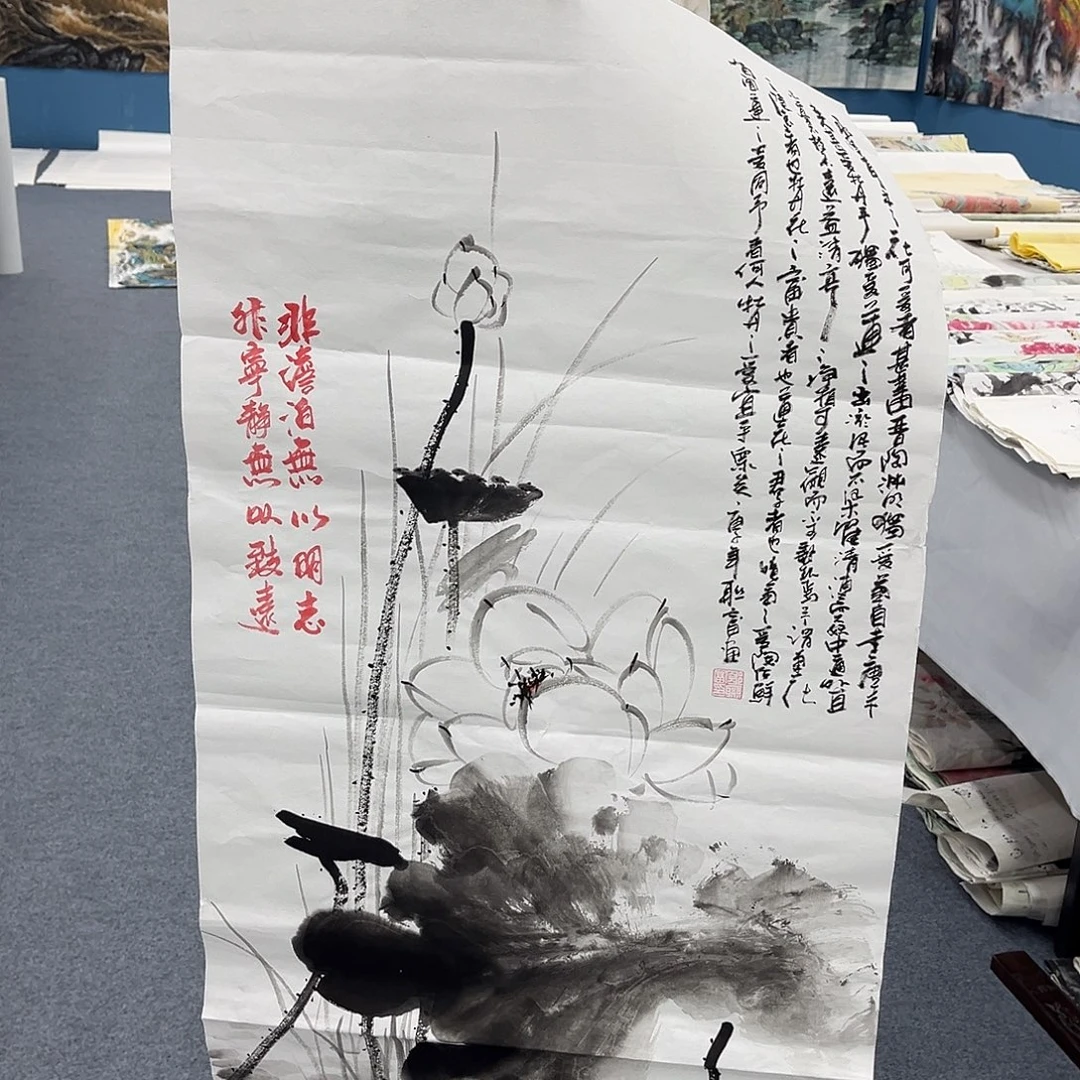 之花可爱者甚蕃晋陶渊明獨爱菊自李唐来
世人甚爱牡丹予獨爱蓮之出淤泥而不染濯清涟而不妖中通外直
不蔓不枝香遠益清亭亭净植可遠觀而不可亵玩焉予謂菊之
隐逸者也牡丹花之富貴者也蓮花之君子者也噫菊之爱陶後鮮
有聞蓮之爱同予者何人牡丹之爱宜乎衆矣庚子年
非澹泊無以明志
非寧静無以致遠